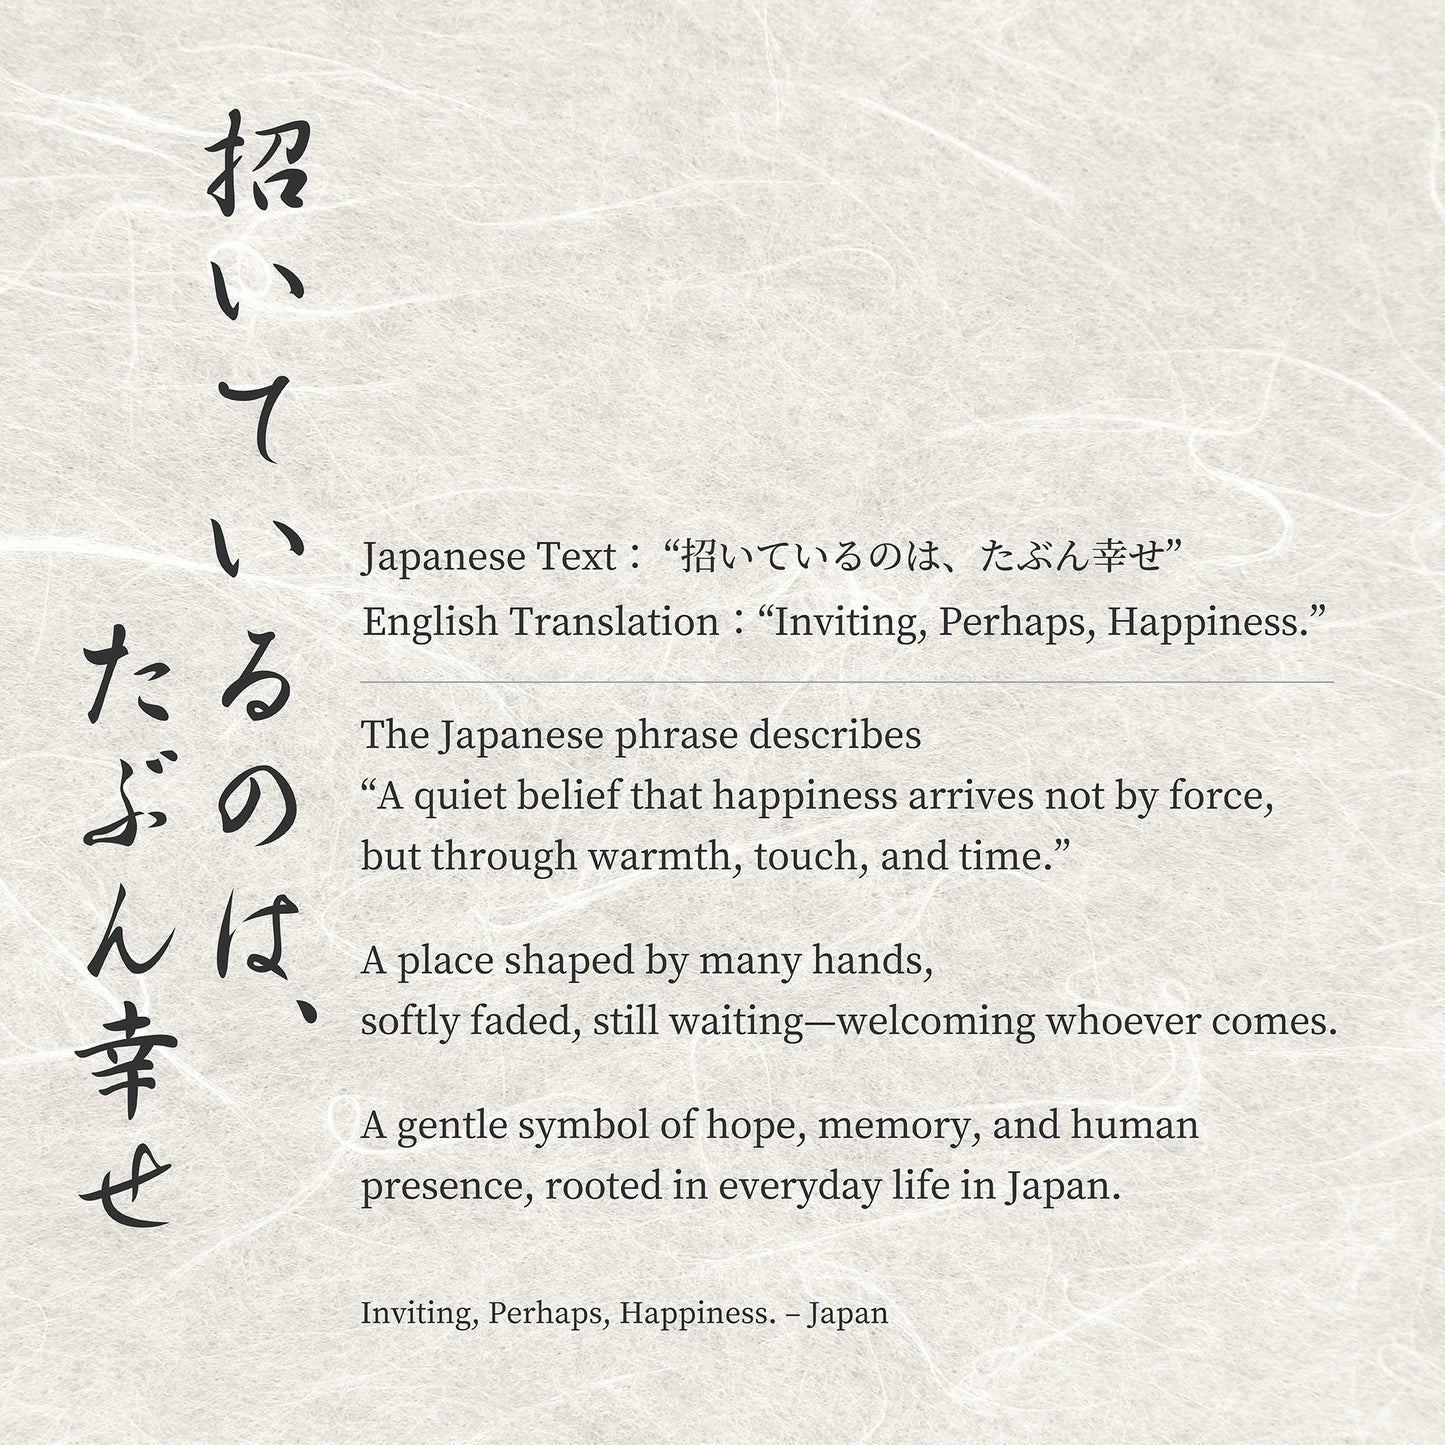 招いているのは、
たぶん幸せ
Japanese Text：“招いているのは、たぶん幸せ”
English Translation：“Inviting, Perhaps, Happiness.”
The Japanese phrase describes
“A quiet belief that happiness arrives not by force,
but through warmth, touch, and time.”
A place shaped by many hands,
softly faded, still waiting—welcoming whoever comes.
A gentle symbol of hope, memory, and human
presence, rooted in everyday life in Japan.
Inviting, Perhaps, Happiness. – Japan